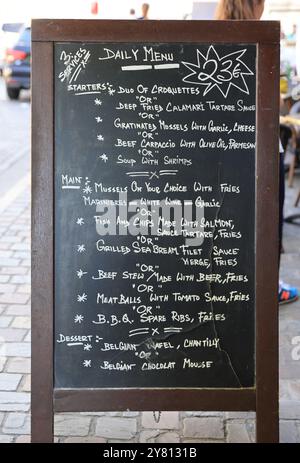 3 SERVICES
DAILY MENU
23€
STARTERS
* DUO OF CROQUETTES
"OR"
* DEEP FRIES CALAMARI, TARTARE SAUCE
"OR"
* GRATINATED MUSSELS WITH GARLIC, CHEESE
"OR"
* BEEF CARPACCIO WITH OLIVE OIL, PARMESAN
"OR"
* SOUP WITH SHRIMPS
MAIN:
* MUSSELS ON YOUR CHOICE WITH FRIES
MARINIERES WHITE WINE GARLIC
"OR"
* FISH AND CHIPS MADE WITH SALMON,
SAUCE TARTARE, FRIES
"OR"
* GRILLED SEA BREAM FILET SAUCE
VIERGE, FRIES
"OR"
* BEEF STEW MADE WITH BEER, FRIES
"OR"
* MEAT BALLS WITH TOMATO SAUCE, FRIES
"OR"
* B.B.Q SPARE RIBS, FRIES
DESSERT:
* BELGIAN WAFEL, CHANTILLY
"OR"
* BELGIAN CHOCOLAT MOUSSE
alamy
Image ID: Y8131B
www.alamy.com